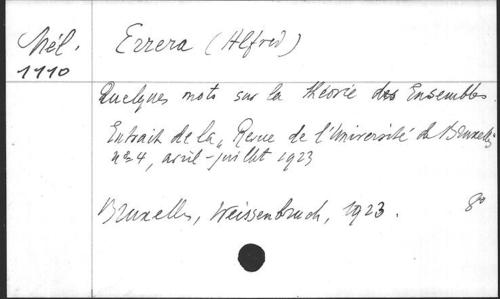 Mél. Errera (Alfred)
1110
Quelques mots sur la théorie des Ensembles
Extrait de la "Revue de l'Université de Bruxelles
n° 4, avril-juillet 1923
Bruxelles, Weissenbruch, 1923. 8°